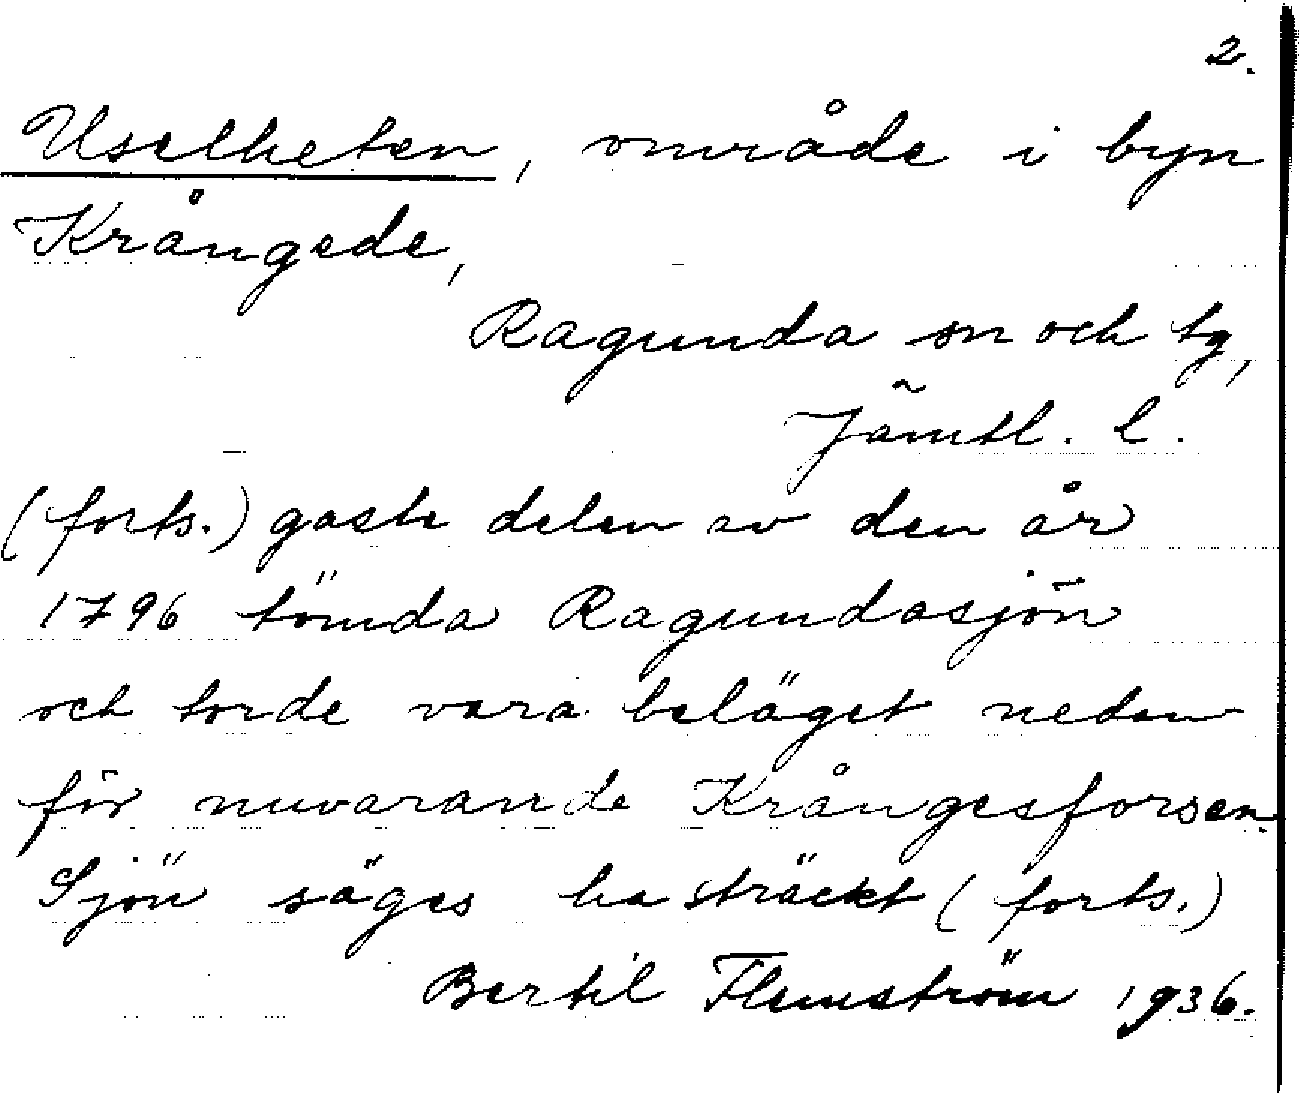 2.
Uselheten, område i byn
Krångede,
Ragunda sn och tg,
Jämtl. l.
(forts.) gaste delen av den år
1796 tömda Ragundasjön
och torde vara beläget nedan
för nuvarande Krångesforsen.
Sjön säges ha sträckt (forts.)
Bertil Flemström 1936.